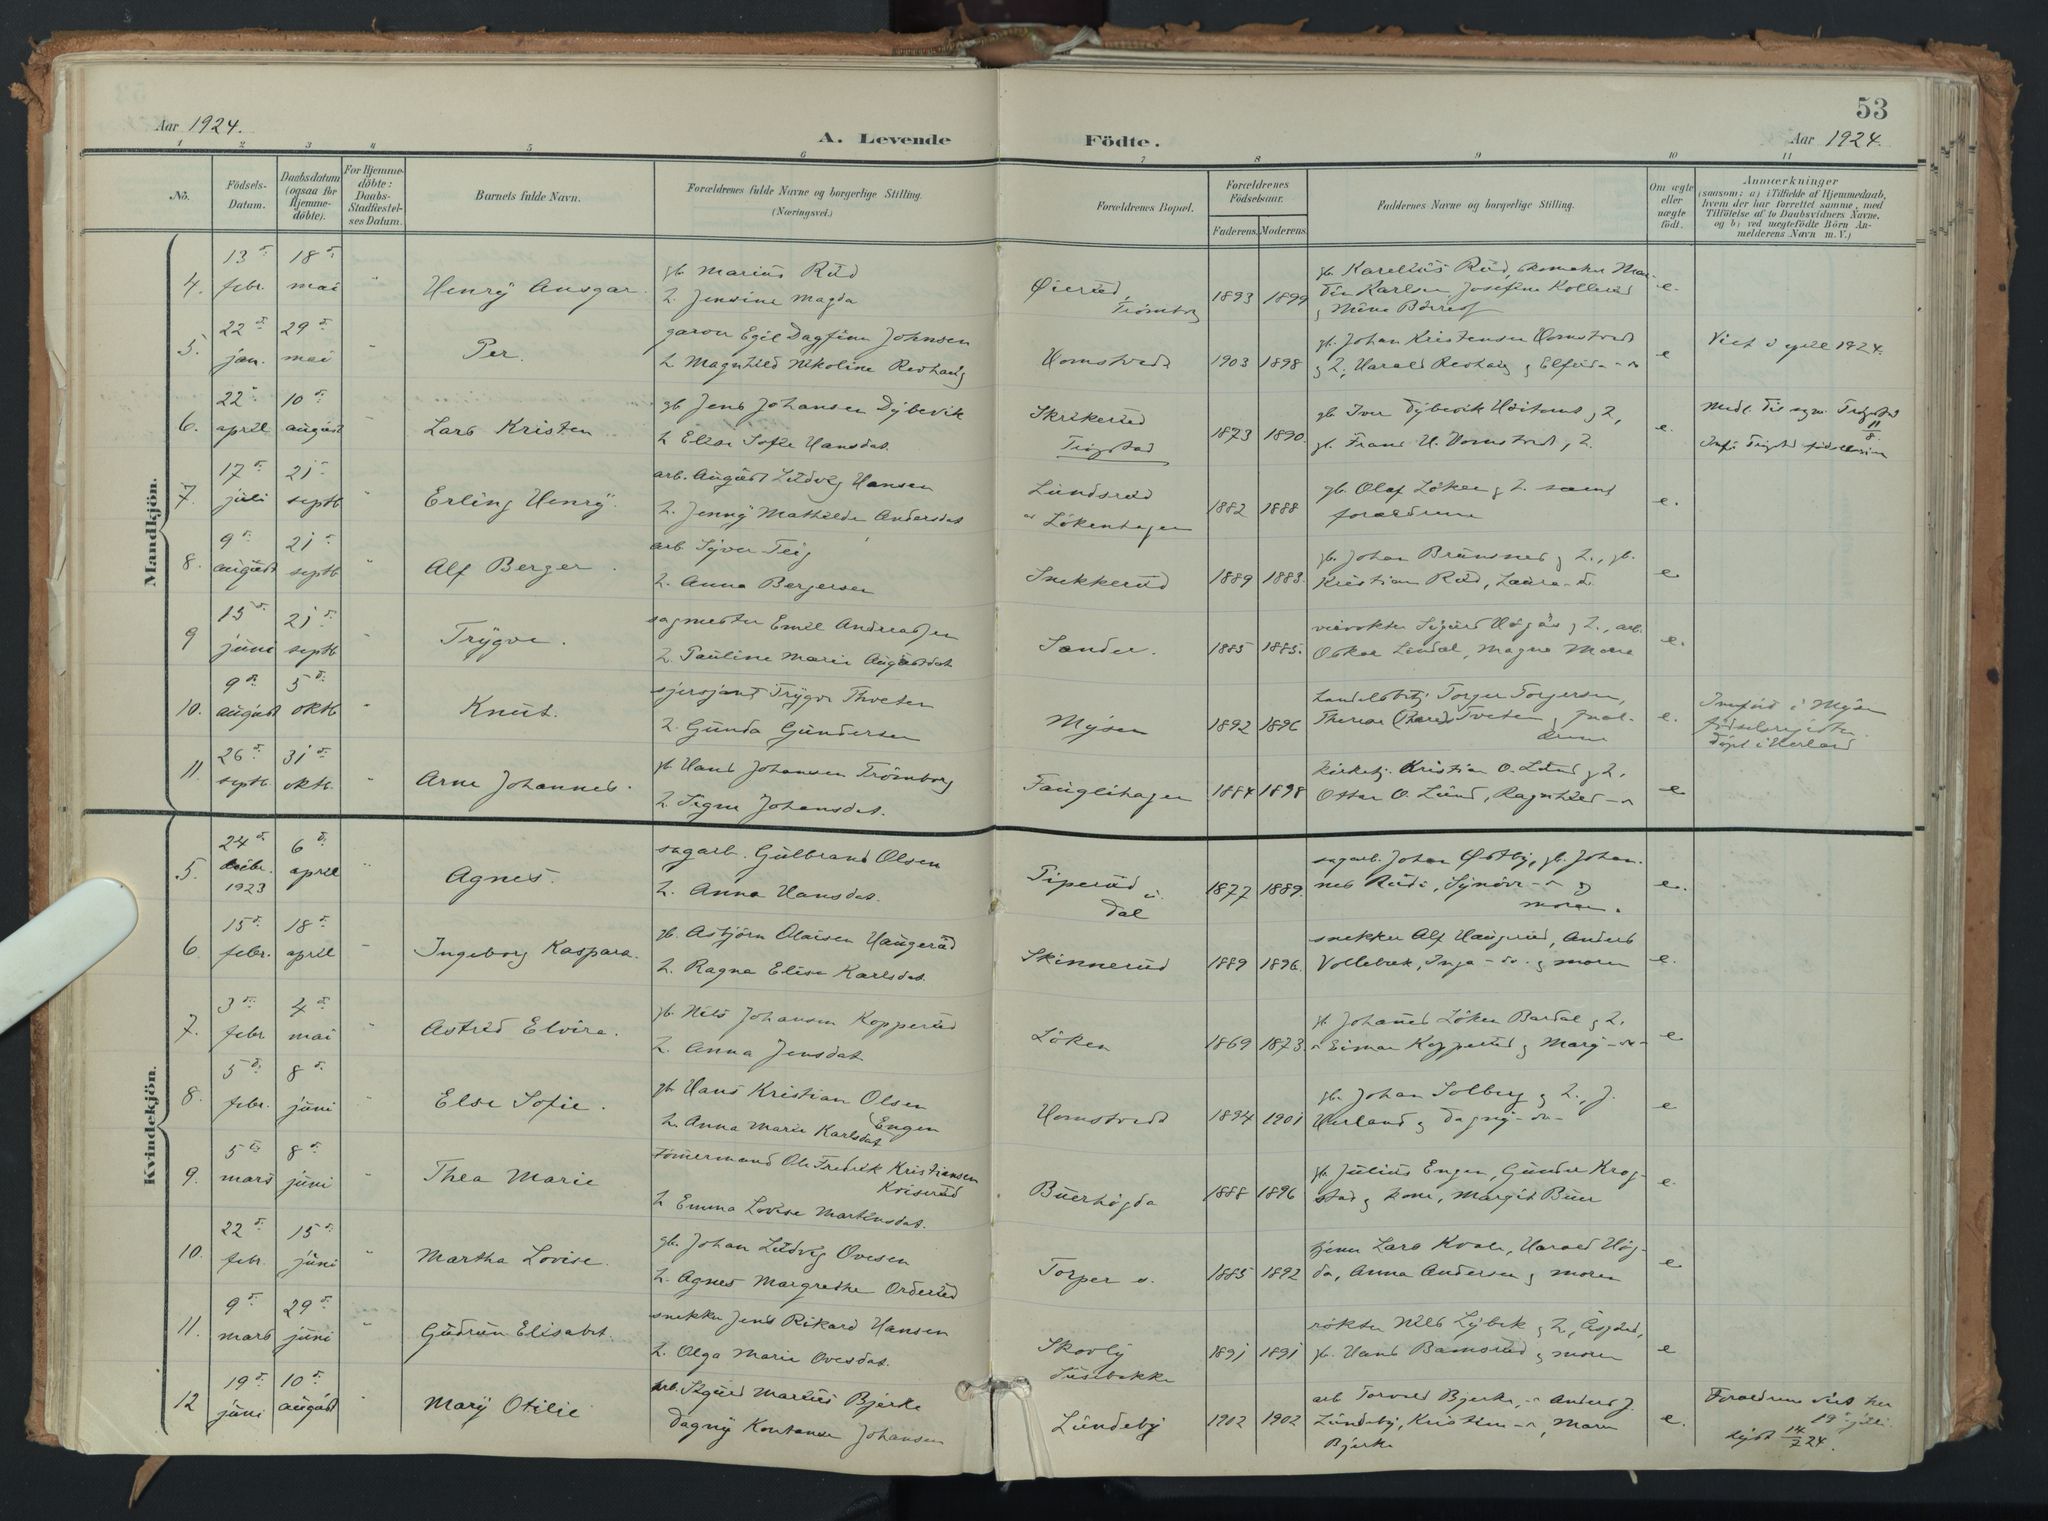 53
Aar 1924.
A. Levende
Födte.
Aar 1924.
1 2 3 4 5 6 7 8 9 10 11
No.
Födsels-Datum.
Daabsdatum (ogsaa for Hjemme-döbte).
For Hjemme-döbte: Daabs-Stadfæstel-ses Datum.
Barnets fulde Navn.
Forældrenes fulde Navne og borgerlige Stilling. (Næringsvei.)
Forældrenes Bopæl.
Forældrenes Födselsaar.
Faderens. Moderens.
Faddernes Navne og borgerlige Stilling.
Om ægte eller uægte födt.
Anmærkninger
(saasom: a) i Tilfælde af Hjemmedaab, hvem der har forrettet samme, med Tilföielse af to Daabsvidners Navne, og b) ved uægtefödte Börn An-melderens Navn m. V.)
Mandkjön.
4. 13 febr. 18 mai " Henry Ansgar.
gb. Marius Rud
h. Jensine Magda
Øierud, Trømborg 1893 1899
gb. Karelius Rud, skomaker Mar-
tin Karlsen, Josefine Kollerud
e.
5. 22 jan. 29 mai " Per.
Egil Dagfinn Johnsen
h. Magnhild Nikoline Revhaug
Homstvedt 1903 1898
gb. Johan Kristensen Homstvedt
g h., Harald Revhaug g
e
Viet 1924.
6. 22 april 10 august Lars Kristen
gb. Jens Johansen Dybevik
h. Elise Sofie Hansdat.
Skrikerud Trøgstad 1873 1890.
gb. Iver Dybevik g h.,
gb. Frans H. Homstvedt g h.
e.
Trøgstad 11/8.
7. 17 juli 21 septb " Erling Henry.
arb. August Ludvig Hansen
h. Jenny Mathilde Andersdat
Lundsrud Løkenhagen 1882 1888
gb. Olaf Løken g h. samt
forældrene
e.
8. 9 august 21 septb " Alf Berger.
arb. Syver Teig
h. Anna Bergersen
Snekkerud 1889 1883.
gb. Johan Brunsnes g h., gb.
Kristian Rud, Laura
e
9 15 juni 21 septb " Trygve.
sagmester Emil Andreassen
h. Pauline Marie Augustdat
Sander. 1885 1885.
Sigurd Høgås g h., arb.
Oskar Lindal, Magna Moen
e.
10. 9 august 5 oktb " Knut.
Trygve Thveten
h. Gunda Gundersen
Mysen 1892 1896
Torger Torgersen,
Tveten g
e.
Indført i Mysen
fødselsregister.
Døpt i Herland
11. 26 septb. 31 oktb. " Arne Johannes.
gb. Hans Johansen Trömborg
h. Signe Johansdat.
Fauglihagen 1884 1898
kirketj. Kristian O. Lund g h.
Ottar O. Lund, Ragnhild
e
Kvindekjön.
5. 24 decbr. 1923 6 april " Agnes.
sagarb. Gulbrand Olsen
h. Anna Hansdat.
Piperud u. Dal 1877 1889.
sagarb. Johan Østby, gb. Johan-
nes Rud, Synøve g
moren.
e.
6 15 febr. 18 april " Ingeborg Kaspara.
gb. Asbjørn Olaisen Haugerud
h. Ragna Elise Karlsdat.
Skinnerud 1889 1896.
snekker Alf Haugerud, Anders
Vollebæk, Inga do. g moren
e.
7. 3 febr 4 mai " Astrid Elvira.
gb. Nils Johansen Kopperud
h. Anna Jensdat
Løken 1869 1873.
gb. Johannes Løken Bardal g h.
Einar Kopperud g Mary
e
8. 5 febr. 8 juni " Else Sofie.
gb. Hans Kristian Olsen
Engen
h. Anna Marie Karlsdat
Homstvedt 1894 1901
gb. Johan Solberg g h., J.
Herland g Dagny do
e
9. 5 mars 8 juni " Thea Marie
tömermand Ole Fredrik Kristiansen
Kriserud
h. Emma Lovise Martinsdat.
Buerhögda 1888 1896
gb. Julius Engen, Gunder Krog-
stad g kone, Margit Buer
e.
10. 22 febr. 15 juni " Martha Lovise.
gb. Johan Ludvig Ovesen
h. Agnes Margrethe Orderud
Torper s. 1885 1892
Lars Kvale, Harald Høg-
da, Anna Andersen g moren
e
11. 9 mars 29 juni " Gudrun Elisabet.
snekker Jens Rikard Hansen
h. Olga Marie Ovesdat.
Skovly Susebakke 1891 1891
røkter Nils Lybek g h.,
gb. Hans Bamsrud g moren
e
12 19 juni 10 august " Mary Otilie
arb. Sigurd Marius Bjerke
Dagny Konstanse Johansen
Lundeby 1902 1902
arb Torvald Bjerke, Anders J.
Lundeby, Kristine, Maren
Bjerke
e.
Forældrene viet her
19 juli.
lyst 14/7 24.